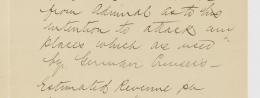 from Admiral as to his
intention to attack any
places which are used
by German Cruisers —
Estimated Revenue